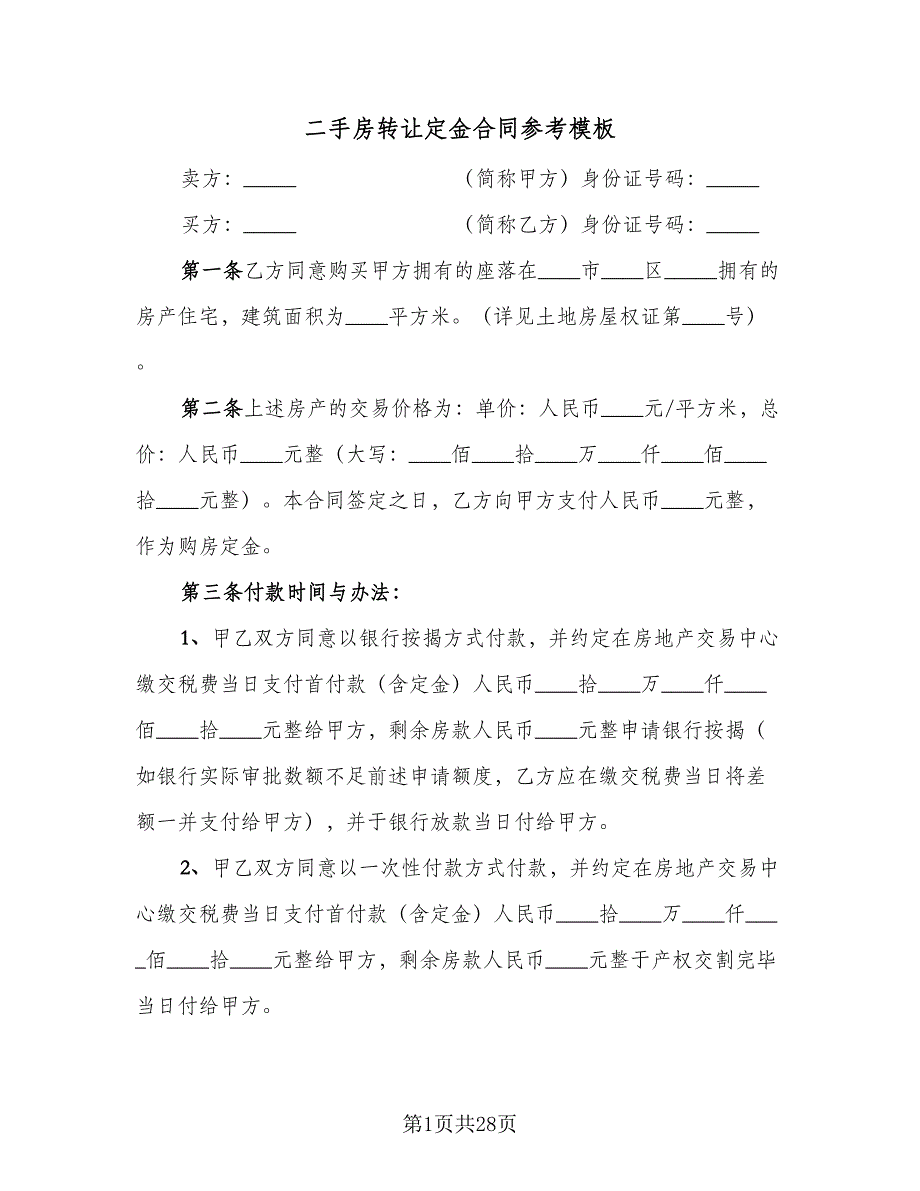 二手房转让定金合同参考模板
卖方：_____ （简称甲方）身份证号码：_____
买方：_____ （简称乙方）身份证号码：_____
第一条乙方同意购买甲方拥有的座落在____市____区_____拥有的
房产住宅，建筑面积为____平方米。（详见土地房屋权证第____号）
。
第二条上述房产的交易价格为：单价：人民币____元/平方米，总
价：人民币____元整（大写：____佰____拾____万____仟____佰____
拾____元整）。本合同签定之日，乙方向甲方支付人民币____元整，
作为购房定金。
第三条付款时间与办法：
1、甲乙双方同意以银行按揭方式付款，并约定在房地产交易中心
缴交税费当日支付首付款（含定金）人民币____拾____万____仟____
佰____拾____元整给甲方，剩余房款人民币____元整申请银行按揭（
如银行实际审批数额不足前述申请额度，乙方应在缴交税费当日将差
额一并支付给甲方），并于银行放款当日付给甲方。
2、甲乙双方同意以一次性付款方式付款，并约定在房地产交易中
心缴交税费当日支付首付款（含定金）人民币____拾____万____仟___
_佰____拾____元整给甲方，剩余房款人民币____元整于产权交割完毕
当日付给甲方。
第1页共28页